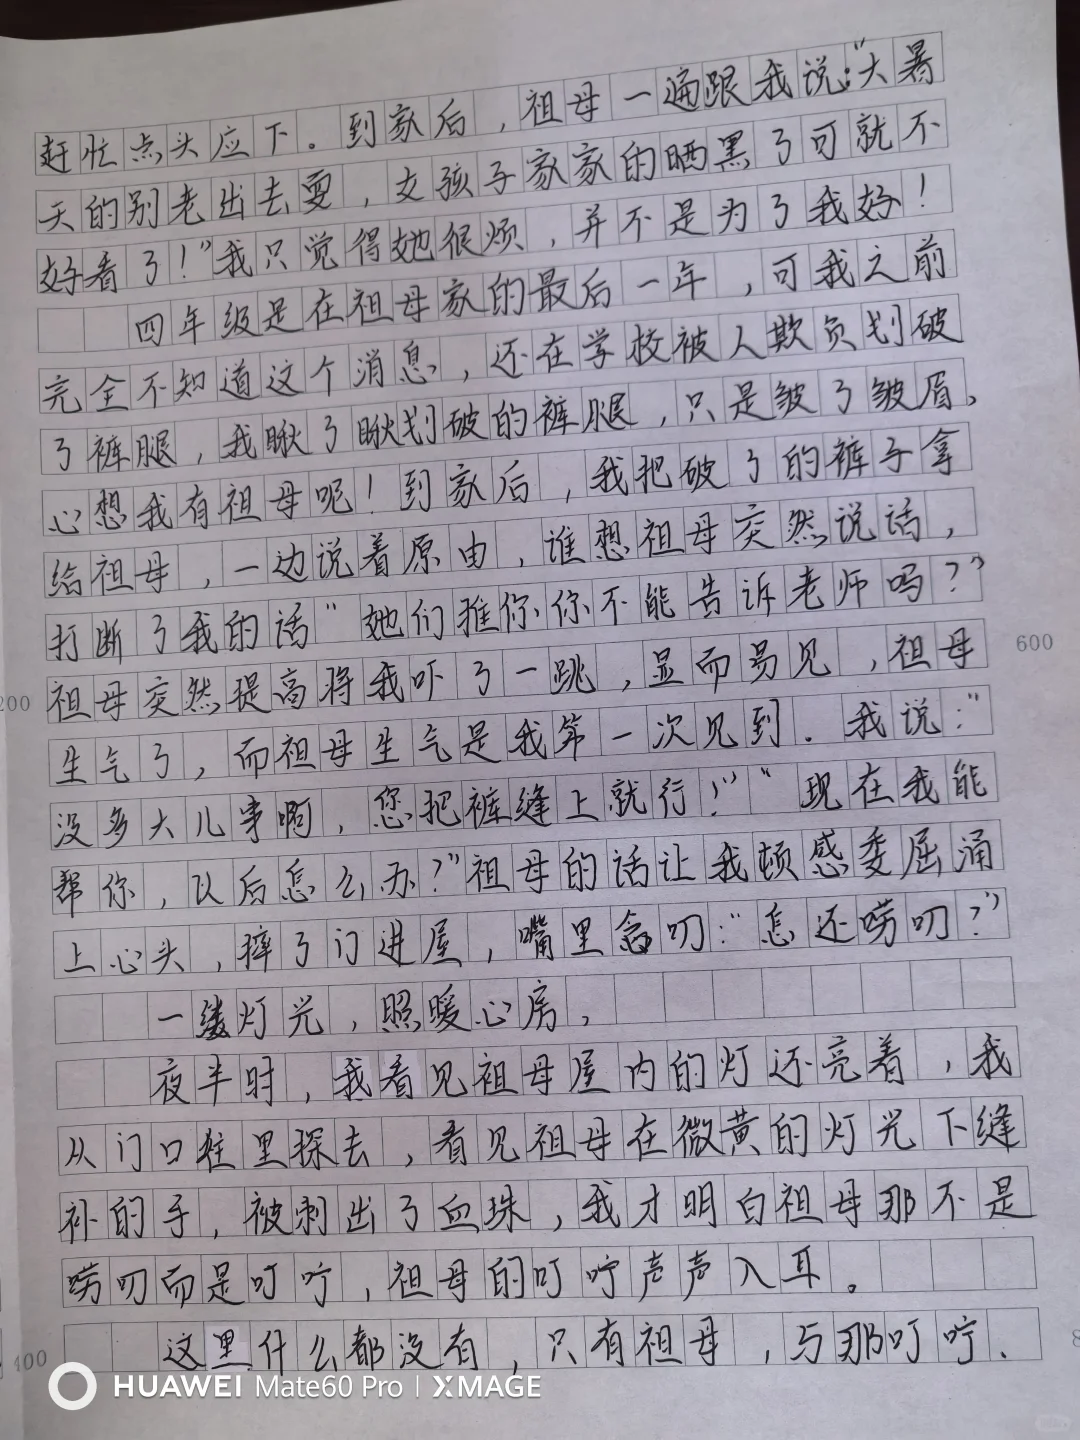 赶忙点头应下。到家后，祖母一遍跟我说：“大暑
天的别老出去耍，女孩子家家的晒黑了可就不
好看了！”我只觉得她很烦，并不是为了我好！
四年级是在祖母家的最后一年，可我之前
完全不知道这个消息，还在学校被人欺负划破
了裤腿，我瞅了瞅划破的裤腿，只是皱了皱眉，
心想我有祖母呢！到家后，我把破了的裤子拿
给祖母，一边说着原由，谁想祖母突然说话，
打断了我的话“她们推你你不能告诉老师吗？”
祖母突然提高将我吓了一跳，显而易见，祖母
600
200
生气了，而祖母生气是我第一次见到．我说：“
没多大儿事啊，您把裤缝上就行！”“现在我能
帮你，以后怎么办？”祖母的话让我顿感委屈涌
上心头，摔了门进屋，嘴里念叨：“怎还唠叨？”
一缕灯光，照暖心房，
夜半时，我看见祖母屋内的灯还亮着，我
从门口往里探去，看见祖母在微黄的灯光下缝
补的手，被刺出了血珠，我才明白祖母那不是
唠叨而是叮咛，祖母的叮咛声声入耳。
这里什么都没有，只有祖母，与那叮咛．
400
HUAWEI Mate60 Pro | XMAGE